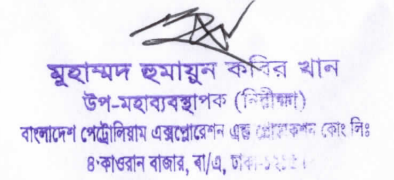 মুহাম্মদ হুমায়ুন কবির খান
উপ-মহাব্যবস্থাপক (নিরীক্ষা)
বাংলাদেশ পেট্রোলিয়াম এক্সপ্লোরেশন এন্ড প্রোডাকশন কোং লিঃ
৪-কাওরান বাজার, বা/এ, ঢাকা-১২১৫।